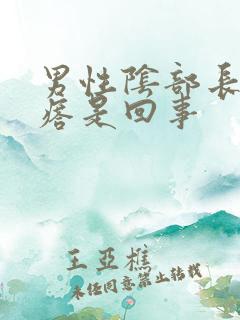 男性陰部長
痞是回事
王亞樵
未经同意禁止转载